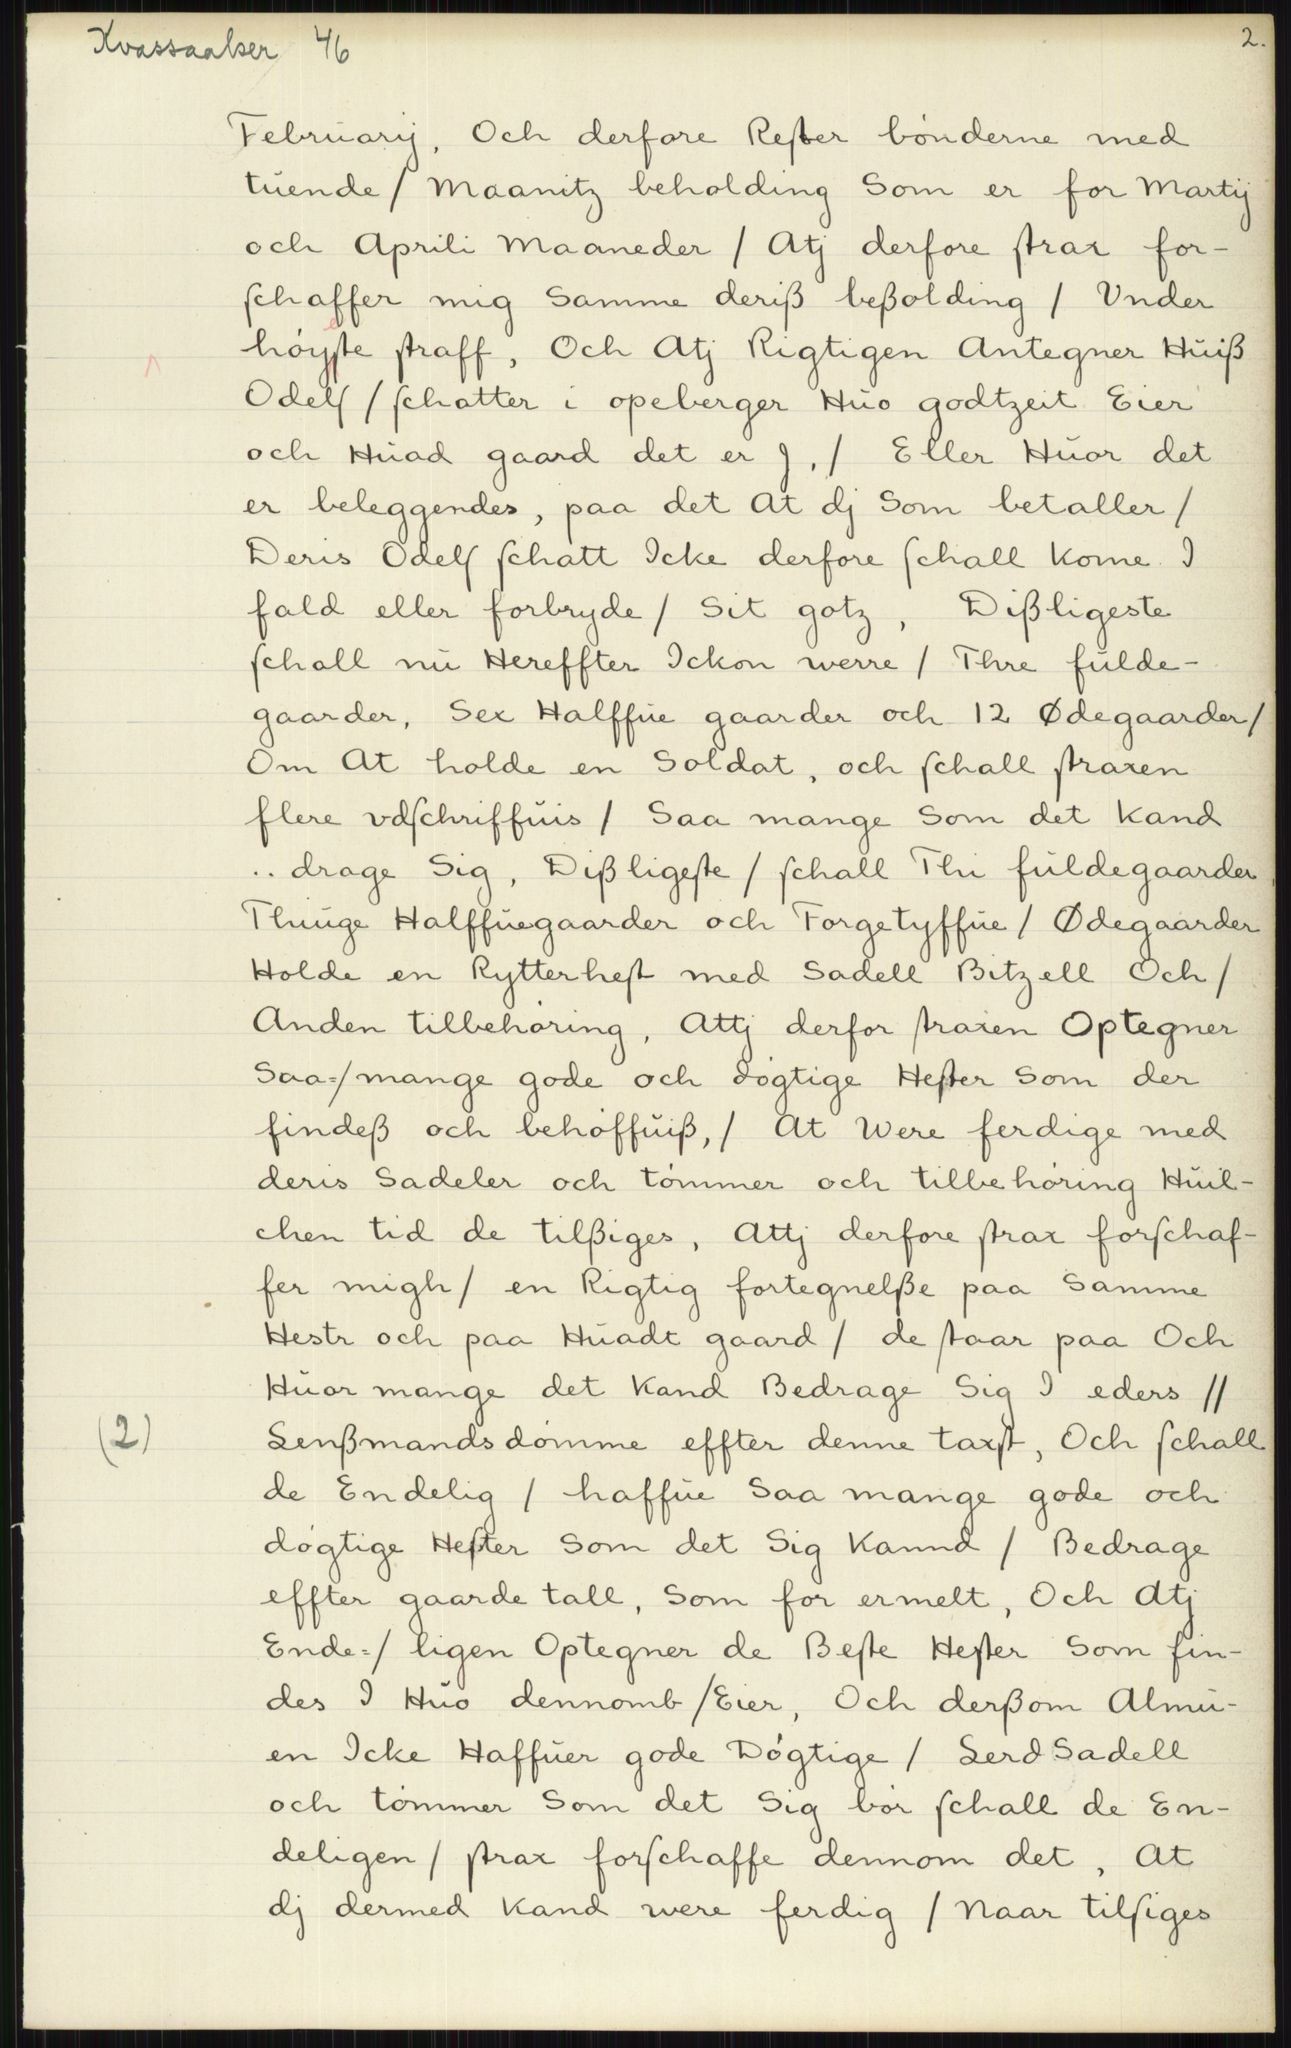 Kvassaaker 46
2.
Februarij, Och derfore Rester bónderne med
tuende / Maanitz beholding Som er for Martij
och Aprili Maaneder / Atj derfore strax for-
schaffer mig Samme deriß beßolding / Vnder
hóyeste straff, Och Atj Rigtigen Antegner Huiß
Odels / schatter i opeberger Huo godtzeit Eier
och Huad gaard det er J, / Eller Huor det
er beleggendes, paa det At dj Som betaller /
Deris Odels schatt Icke derfore schall kome I
fald eller forbryde / Sit gotz, Dißligeste
schall nu Hereffter Ickon werre / Thre fulde-
gaarder, Sex Halffue gaarder och 12 Ødegaarder /
Om At holde en Soldat, och schall straxen
flere vdschriffuis / Saa mange Som det kand
.. drage Sig, Dißligeste / schall Thi fuldegaarder,
Thiuge Halffuegaarder och Forgetyffue / Ødegaarder
Holde en Rytterhest med Sadell Bitzell Och /
Anden tilbehóring, Attj derfor straxen Optegner
Saa=/ mange gode och dógtige Hester Som der
findeß och behóffuiß, / At Were ferdige med
deris Sadeler och tómmer och tilbehóring Huil-
chen tid de tilßiges, Attj derfore strax forschaf-
fer migh / en Rigtig fortegnelße paa Samme
Hestr och paa Huadt gaard / de staar paa Och
Huor mange det kand Bedrage Sig I eders //
(2) Lenßmandsdómme effter denne taxst, Och schall
de Endelig / haffue Saa mange gode och
dógtige Hester Som det Sig kannd / Bedrage
effter gaarde tall, Som for ermelt, Och Atj
Ende=/ ligen Optegner de Beste Hester Som fin-
des I Huo dennomb / Eier, Och derßom Almu-
en Icke Haffuer gode Dógtige / Lerd Sadell
och tómmer Som det Sig bór schall de En-
deligen / strax forschaffe dennom det, At
dj dermed kand were ferdig / Naar tilsiges